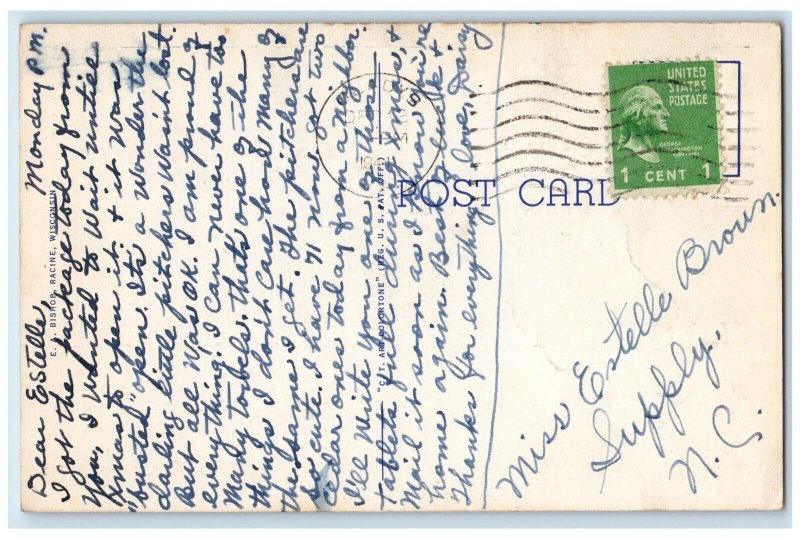 Monday P.M.
Dear Estelle,
I got the package today from
You, I wanted to Wait untill
Xmas to open it. & it was
"busted" open. Its a Wonder the
darling little pitchers Wasn't lost.
But all Was OK. I am proud of
everything. I can never have too
Many towels. thats one of the
things I don't care how Many of
the same I get. The pitchers are
so cute. I have 71 now. got two
cedar ones today from a neighbor.
I'll Write you one of those
tablets full during Xmas, &
Mail it soon as I know you're
home again. Best of luck &
Thanks for everything, love, Daisy
E. A. BISHOP, RACINE, WISCONSIN
"C.T. ART-COLORTONE" (REG. U. S. PAT. OFF.)
POST CARD
PM
UNITED
STATES
POSTAGE
GEORGE
WASHINGTON
1 CENT 1
Miss Estelle Brown.
Supply,
N.C.